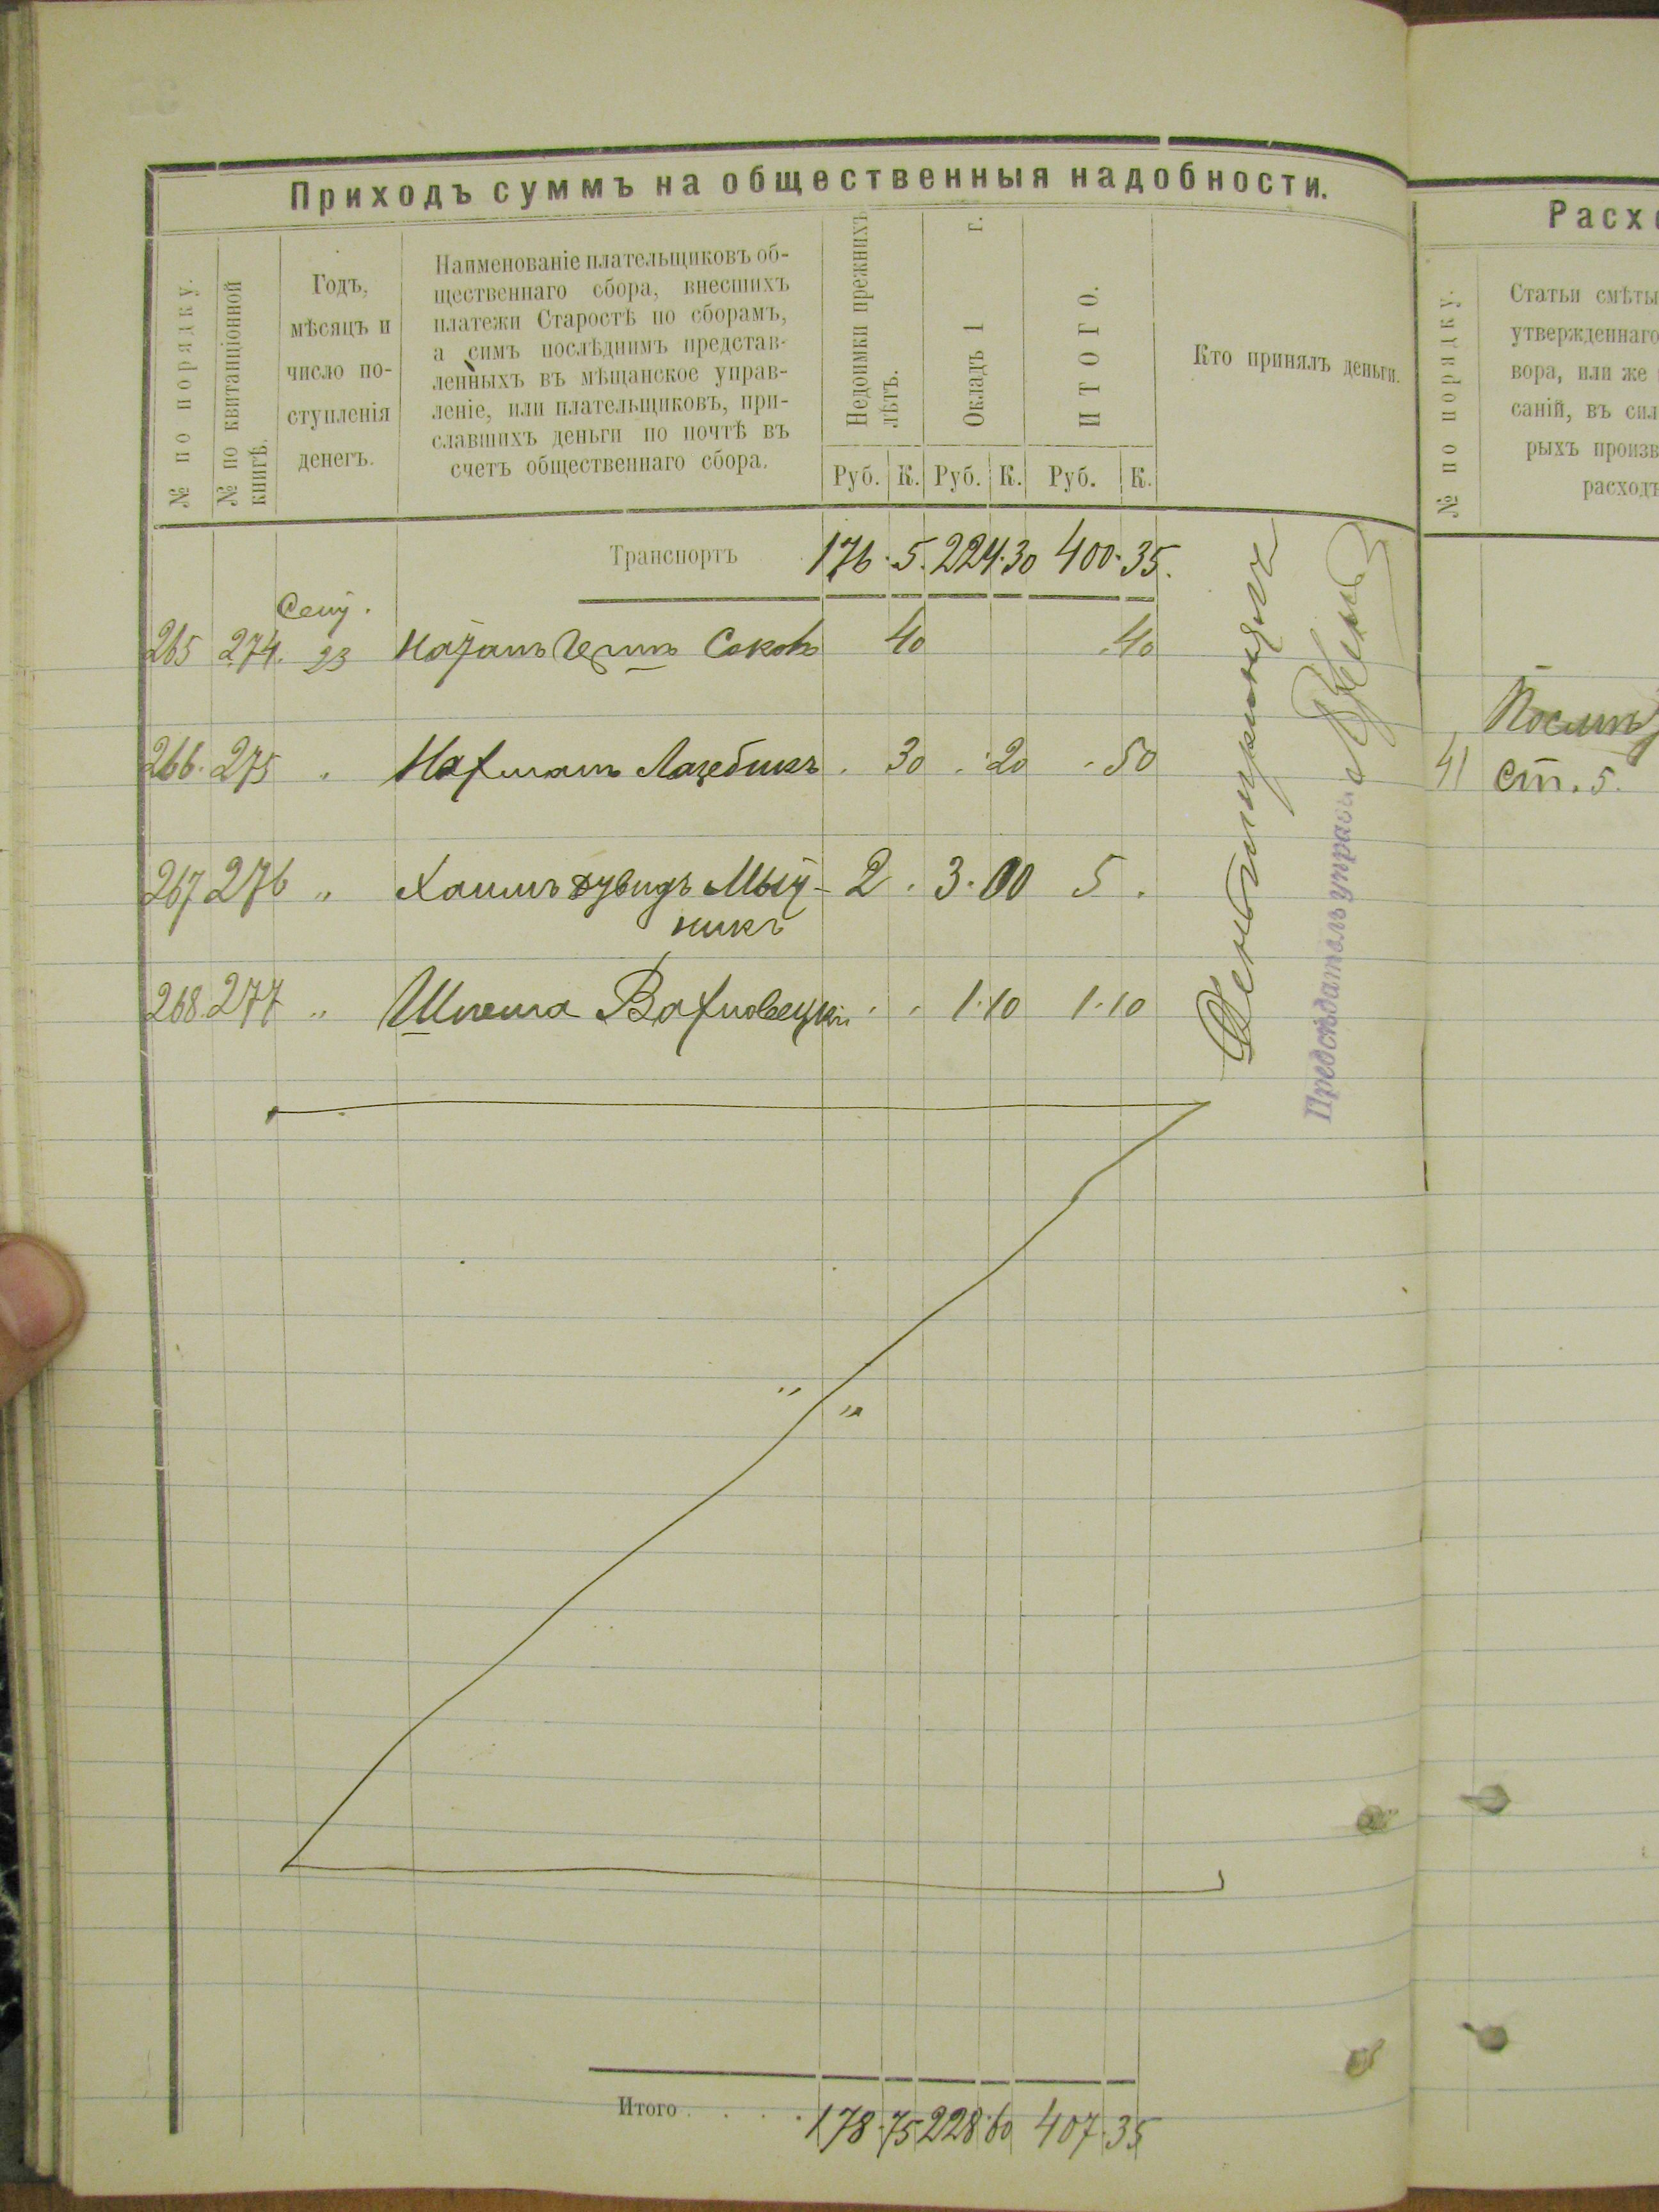 Приходъ суммъ на общественныя надобности.
№ по порядку.
№ по квитанціонной
книгѣ.
Годъ,
мѣсяцъ и
число по-
ступленія
денегъ.
Наименованіе плательщиковъ об-
щественнаго сбора, внесшихъ
платежи Старостѣ по сборамъ,
а симъ послѣднимъ представ-
ленныхъ въ мѣщанское управ-
леніе, или плательщиковъ, при-
славшихъ деньги по почтѣ въ
счетъ общественнаго сбора.
Недоимки прежнихъ
лѣтъ.
Окладъ 1 г.
ИТОГО.
Кто принялъ деньги.
Руб. К. Руб. К. Руб. К.
Транспортъ 176. 5. 224. 30 400. 35.
265 274. 23 40 .40
266. 275 " Нахманъ Лазебникъ . 30 . 20 . 50
267 276 " Хаимъ Дувидъ 2 . 3. 00 5 .
никъ
268. 277 " . . 1.10 1.10
Предсѣдатель управы
Итого . . . . 178. 75 228. 60 407. 35
Расхо
№ по порядку.
Статьи смѣты
утвержденнаго
вора, или же
саній, въ сил
рыхъ произв
расходъ
41 ст. 5.